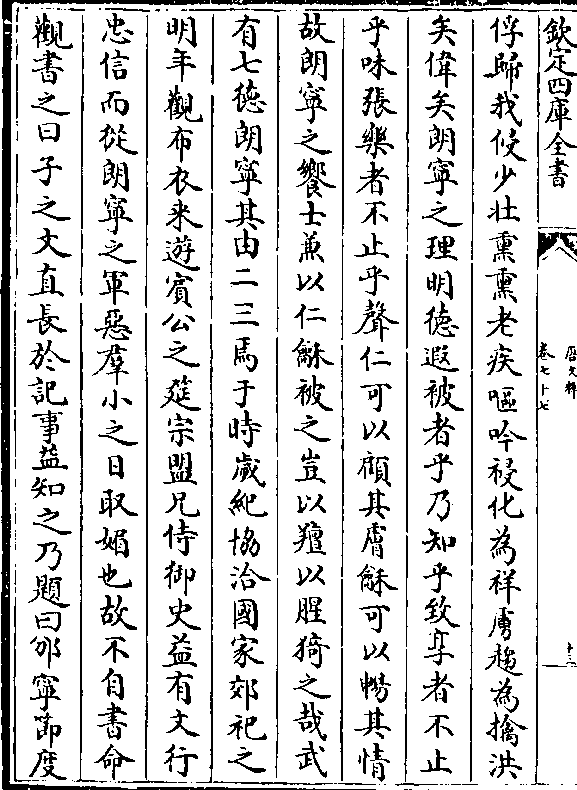 欽定四庫全書
卷七十七
俘歸我候少壯熏熏老疾嘔吟祲化為祥虜趨為擒洪
矣偉矣朗寧之理明德遐被者乎乃知乎致享者不止
乎味張樂者不止乎聲仁可以頋其膚龢可以暢其情
故朗寧之饗士兼以仁龢被之豈以羶以腥猗之哉武
有七德朗寧其由二三焉于時歲紀協洽國家郊祀之
明年觀布衣來遊賔公之筵宗盟兄侍御史益有文行
忠信而從朗寧之軍惡羣小之日取媚也故不自書命
觀書之曰子之文直長於記事益知之乃題曰邠寧節度